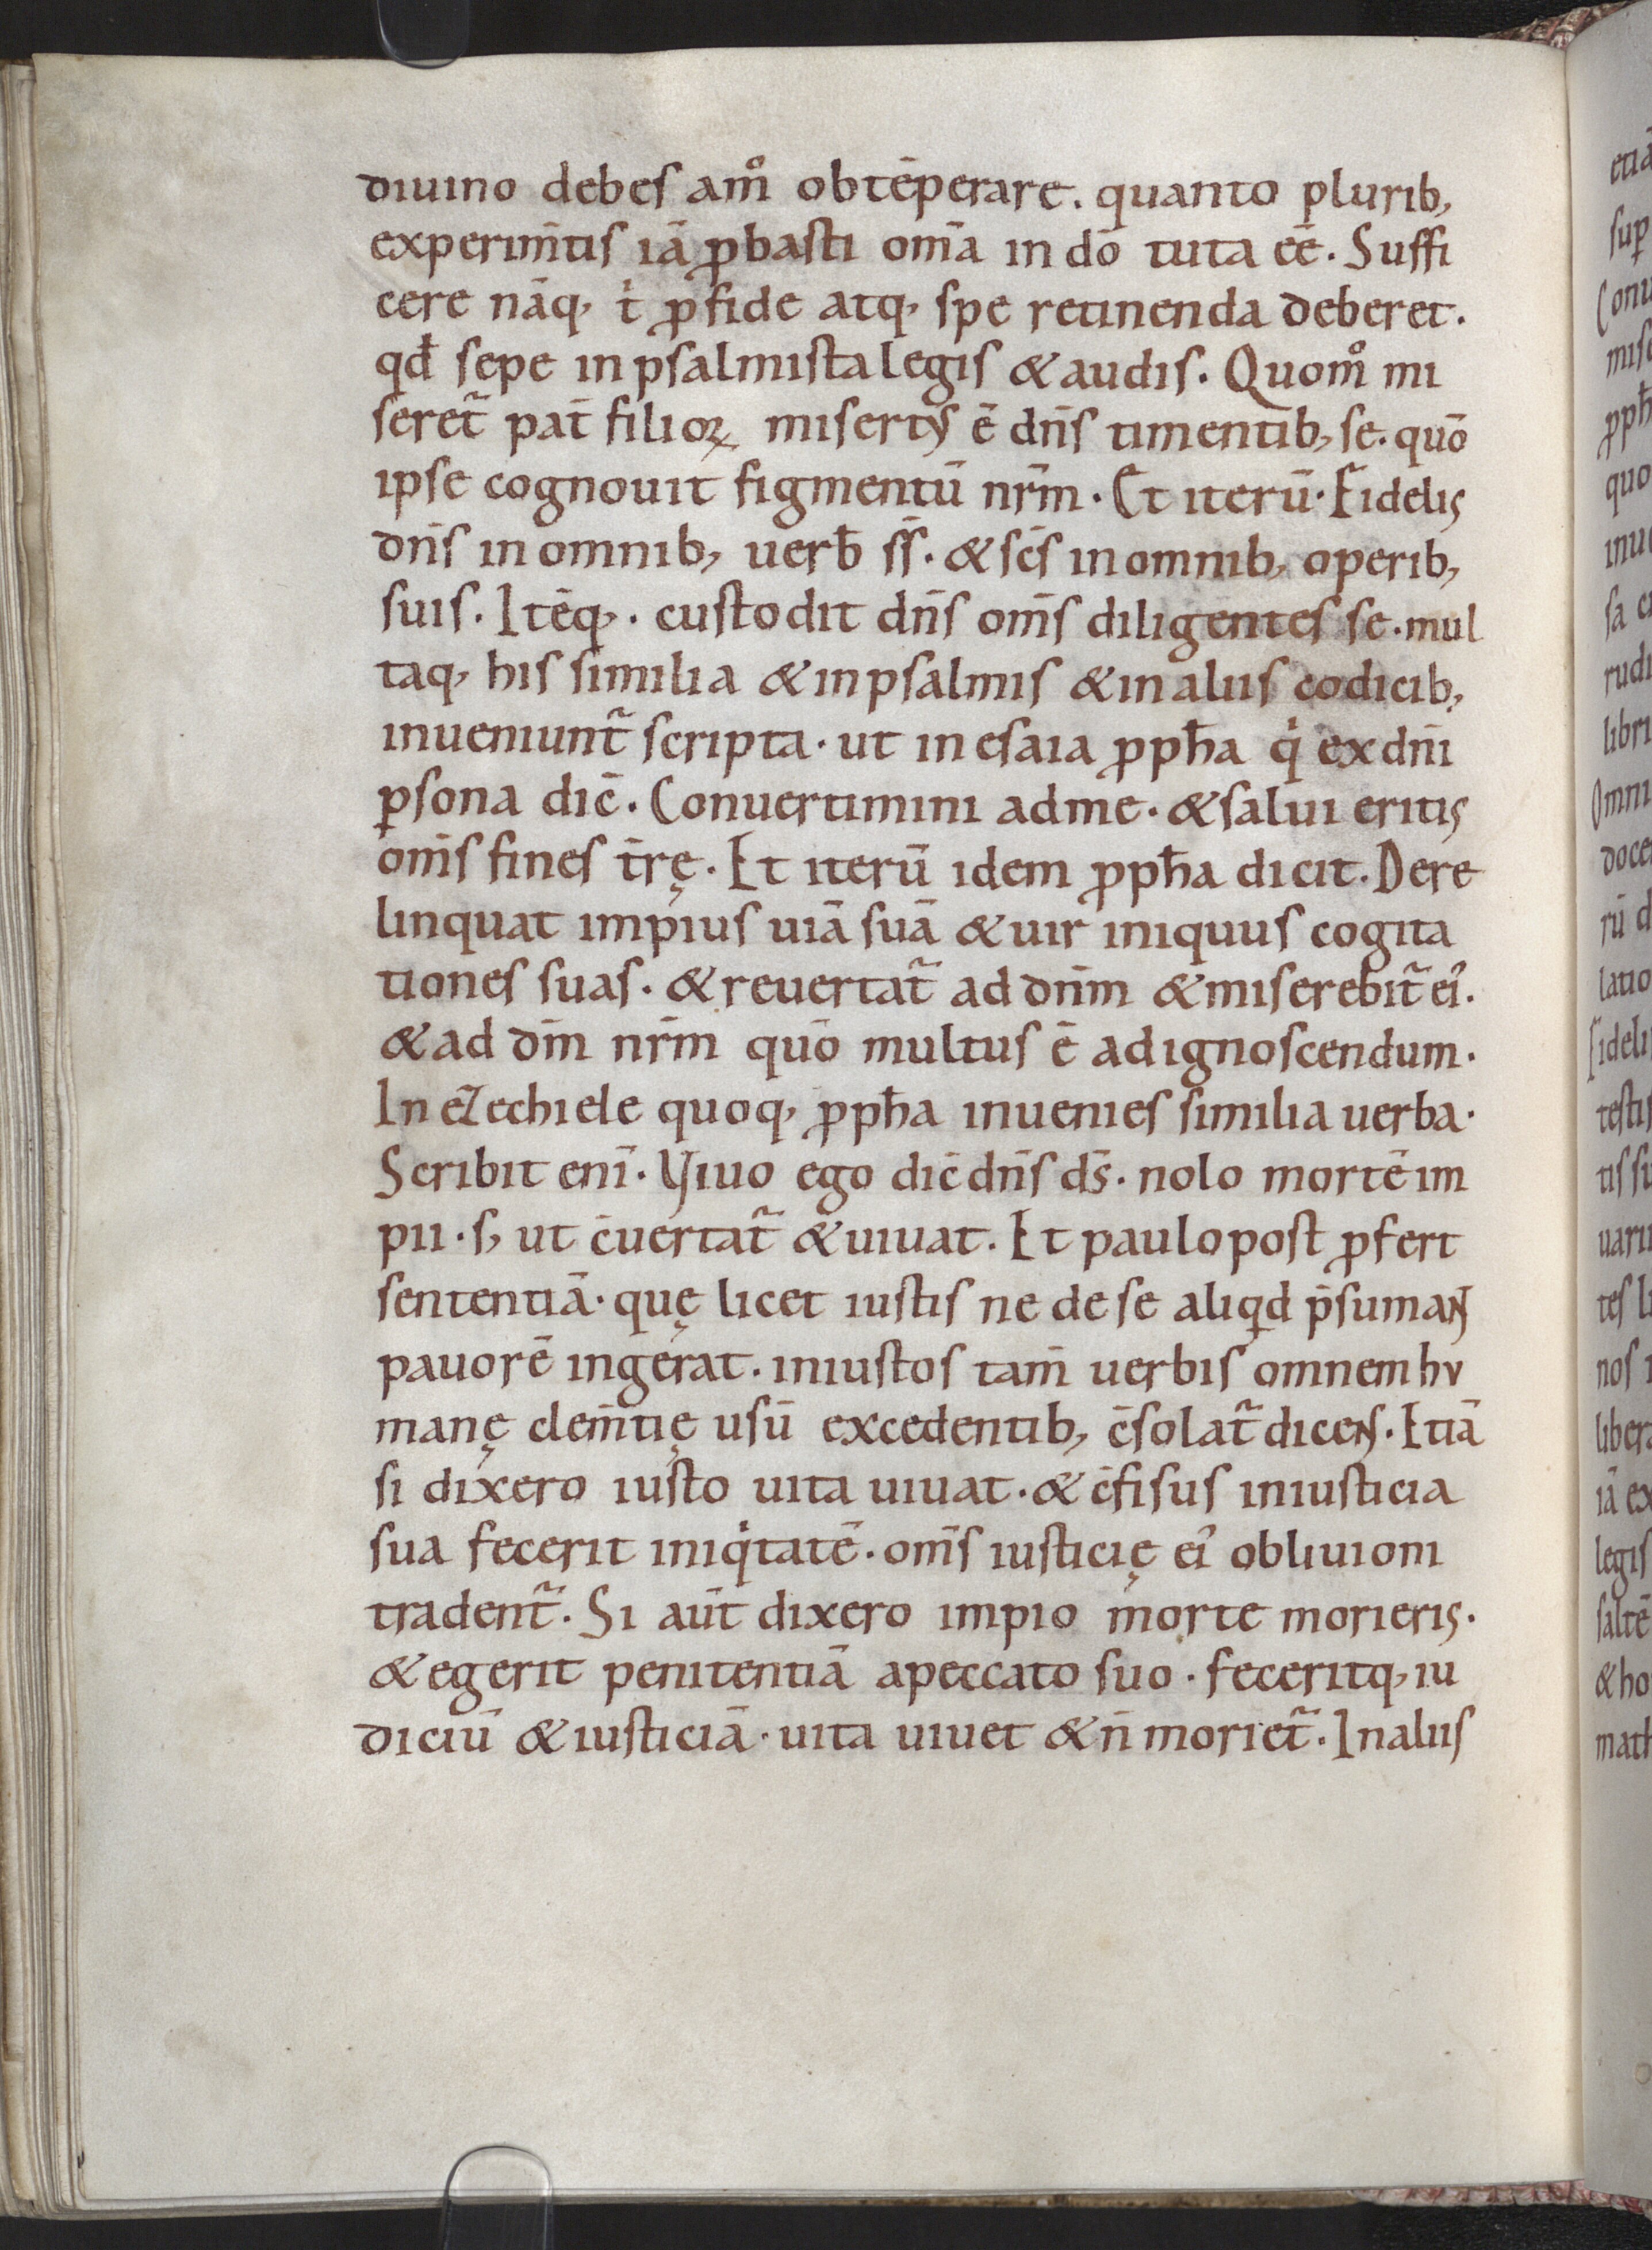 diuino debes am̊ obtēperare. quanto plurib;
experim̄tis iā ꝓbasti om̄a in dō tuta eē. Suffi
cere nāq; t̍ ꝓ fide atq; spe retinenda deberet.
qđ sepe in psalmista legis & audis. Quom̊ mi
seret᷑ pat̄ filioꝝ misertꝰ ē dn̄s timentib; se. quō
ipse cognouit figmentū nr̄m. Et iterū. Fidelis
dn̄s in omnib; uerƀ ss̄. & sc̄s in omnib; operib;
suis. Itēq;. custodit dn̄s om̄s diligentes se. mul
taq; his similia & in psalmis & in aliis codicib;
inueniunt᷑ scripta. ut in esaia ꝓph̄a q̍ ex dn̄i
ꝑsona dic̄. Conuertimini ad me. & salui eritis
om̄s fines t̄rę. Et iterū idem ꝓph̄a dicit. Dere
linquat impius uiā suā & uir iniquus cogita
tiones suas. & reuertat᷑ ad dn̄m & miserebit᷑ ei᷒.
& ad dm̄ nr̄m quō multus ē ad ignoscendum.
In ezechiele quoq; ꝓph̄a inuenies similia uerba.
Scribit eni̅. Viuo ego dic̄ dn̄s ds̄. nolo mortē im
pii. s; ut c̄uertat᷑ & uiuat. Et paulo post ꝓfert
sententiā. quę licet iustis ne de se aliqd p̄sumant
pauorē ingerat. iniustos tam̄ uerbis omnem hu
manę clem̄tię usū excedentib; c̄solat᷑ dicens. Etiā
si dixero iusto uita uiuat. & c̄fisus in iusticia
sua fecerit iniq̍tatē. om̄s iusticię ei᷒ obliuioni
tradent᷑. Si aūt dixero impio morte morieris.
& egerit penitentiā a peccato suo. feceritq; iu
diciū & iusticiā. uita uiuet & n̄ moriet᷑. In aliis